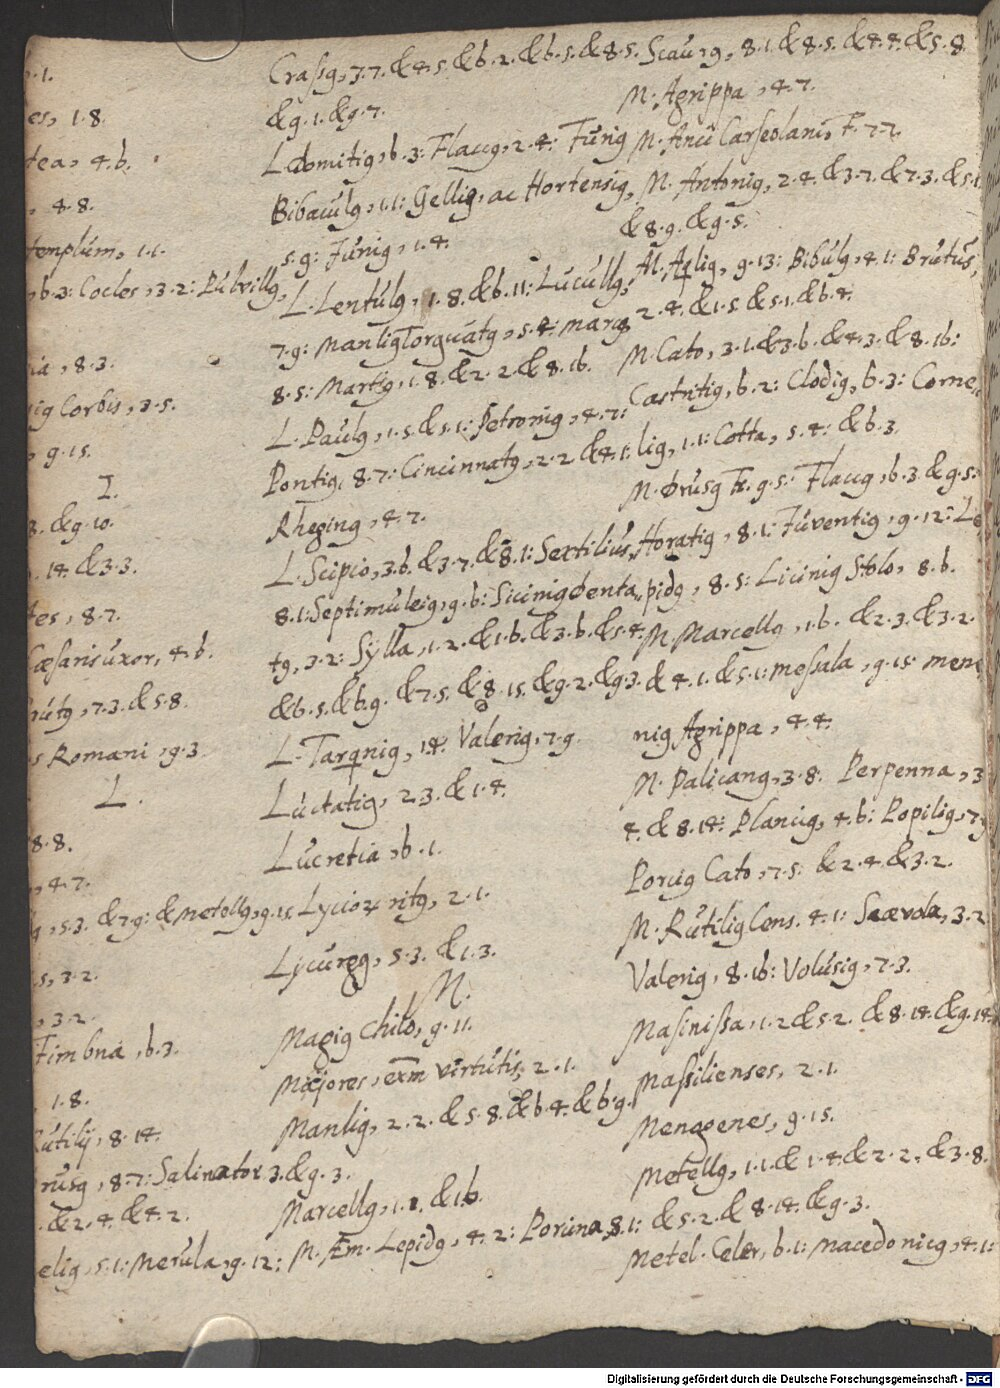 .1.
es, 1.8.
tea, 4.6.
, 4.8.
templum, 1.1.
, 6.3: Cocles, 3.2: Rutillꝰ,
ia, 8.3.
iꝰ Corbis, 3.5.
, 9.15.
I.
3. & 9.10.
. 14. & 3.3.
tes, 8.7.
Cæsaris uxor, 4.6.
rutꝰ, 7.3. & 5.8.
s Romani, 9.3.
L.
8.8.
, 4.7.
ꝰ, 5.3. & 7.9: & Metellꝰ, 9.15
s, 3.2.
, 3.2.
Fimbria, 6.3.
1.8.
Rutilij, 8.14.
rusꝰ, 8.7: Salinator 3. & 9.3.
. & 2.4. & 4.2.
eliꝰ, 5.1: Merula, 9.12:
Crassꝰ, 3.7. & 4.5. & 6.2. & 6.5. & 8.5.
& 9.1. & 9.7.
L. Domitiꝰ, 6.3: Flaccꝰ, 2.4: Furiꝰ
Bibaculꝰ, 1.1: Gelliꝰ, ac Hortensiꝰ,
5.9: Juniꝰ, 1.4.
L. Lentulꝰ, 1.8. & 6.11: Lucullꝰ,
7.9: Manliꝰ Torquatꝰ, 5.4: Marcꝰ
8.5: Martiꝰ, 1.8. & 2.2. & 8.16.
L. Paulꝰ, 1.5. & 5.1: Petroniꝰ, 4.7:
Pontiꝰ, 8.7: Cincinnatꝰ, 2.2. & 4.1:
Rheginꝰ, 4.7.
L. Scipio, 3.6. & 3.7. & 8.1: Sextilius,
8.1: Septimuleiꝰ, 9.6: Siciniꝰ Denta„
tꝰ, 3.2: Sylla, 1.2. & 1.6. & 3.6. & 5.4.
& 6.5. & 6.9. & 7.5. & 8.15. & 9.2. & 9.3.
L. Tarqniꝰ, 14. Valeriꝰ, 7.9.
Luctatiꝰ, 2.3. & 1.4.
Lucretia, 6.1.
Lycioꝝ ritꝰ, 2.1.
Lycurgꝰ, 5.3. & 1.3.
M.
Magiꝰ Chilo, 9.11.
Majores, exm virtutis, 2.1.
Manliꝰ, 2.2. & 5.8. & 6.4. & 6.9.
Marcellꝰ, 1.1. & 1.6.
M. Æm. Lepidꝰ, 4.2: Porcina, 8.1:
Scaurꝰ, 8.1. & 8.5. & 4.4. & 5.8
M. Agrippa, 4.7.
M. Anii Carseolani, F. 7.7.
M. Antoniꝰ, 2.4. & 3.7. & 7.3. & 5.1.
& 8.9. & 9.5.
M. Aqliꝰ, 9.13: Bibulꝰ, 4.1: Brutus,
2.4. & 1.5. & 5.1. & 6.4.
M. Cato, 3.1. & 3.6. & 4.3. & 8.16:
Castritiꝰ, 6.2: Clodiꝰ, 6.3: Corne„
liꝰ, 1.1: Cotta, 5.4: & 6.3.
M. Drusꝰ Tr. 9.5: Flaccꝰ, 6.3. & 9.5:
Horatiꝰ, 8.1: Juventiꝰ, 9.12: Le
pidꝰ, 8.5: Liciniꝰ Stolo, 8.6.
M. Marcellꝰ, 1.6. & 2.3. & 3.2.
& 4.1. & 5.1: Messala, 9.15: Mene
niꝰ Agrippa, 4.4.
M. Palicanꝰ, 3.8. Perpenna, 3
4. & 8.14: Planciꝰ, 4.6: Popiliꝰ, 7.9
Porciꝰ Cato, 7.5. & 2.4. & 3.2.
M. Rutiliꝰ Cens. 4.1: Scævola, 3.2
Valeriꝰ, 8.16: Volusiꝰ, 7.3.
Masinissa, 1.2 & 5.2. & 8.14. & 9.14
Massilienses, 2.1.
Menogenes, 9.15.
Metellꝰ, 1.1. & 1.4. & 2.2. & 3.8.
& 5.2. & 8.14. & 9.3.
Metel. Celer, 6.1: Macedonicꝰ, 4.1:
Digitalisierung gefördert durch die Deutsche Forschungsgemeinschaft - DFG